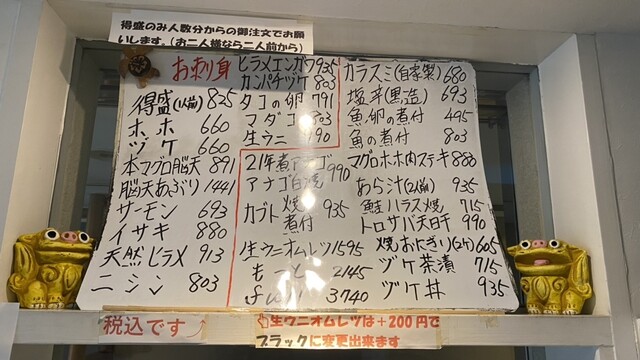 得盛のみ人数分からの御注文でお願
いします。(お二人様なら二人前から)
お刺身
得盛(1人前) 825
ホホ 660
ヅケ 660
本マグロ脳天 891
脳天あぶり 1441
サーモン 693
イサキ 880
天然ヒラメ 913
ニシン 803
ヒラメエンガワ 935
カンパチヅケ 803
タコの卵 791
マダコ 803
生ウニ
21年煮アナゴ
アナゴ白焼 990
カブト焼 935
煮付
生ウニオムレツ 1595
もっと 2145
full 3740
カラスミ(自家製) 680
塩辛(黒造) 693
魚卵の煮付 495
魚の煮付 803
マグロホホ肉ステーキ 880
あら汁(2人前) 935
鮭ハラス焼 715
トロサバ天日干 990
焼おにぎり(2ケ) 605
ヅケ茶漬 715
ヅケ丼 935
税込です
生ウニオムレツは+200円で
ブラックに変更出来ます